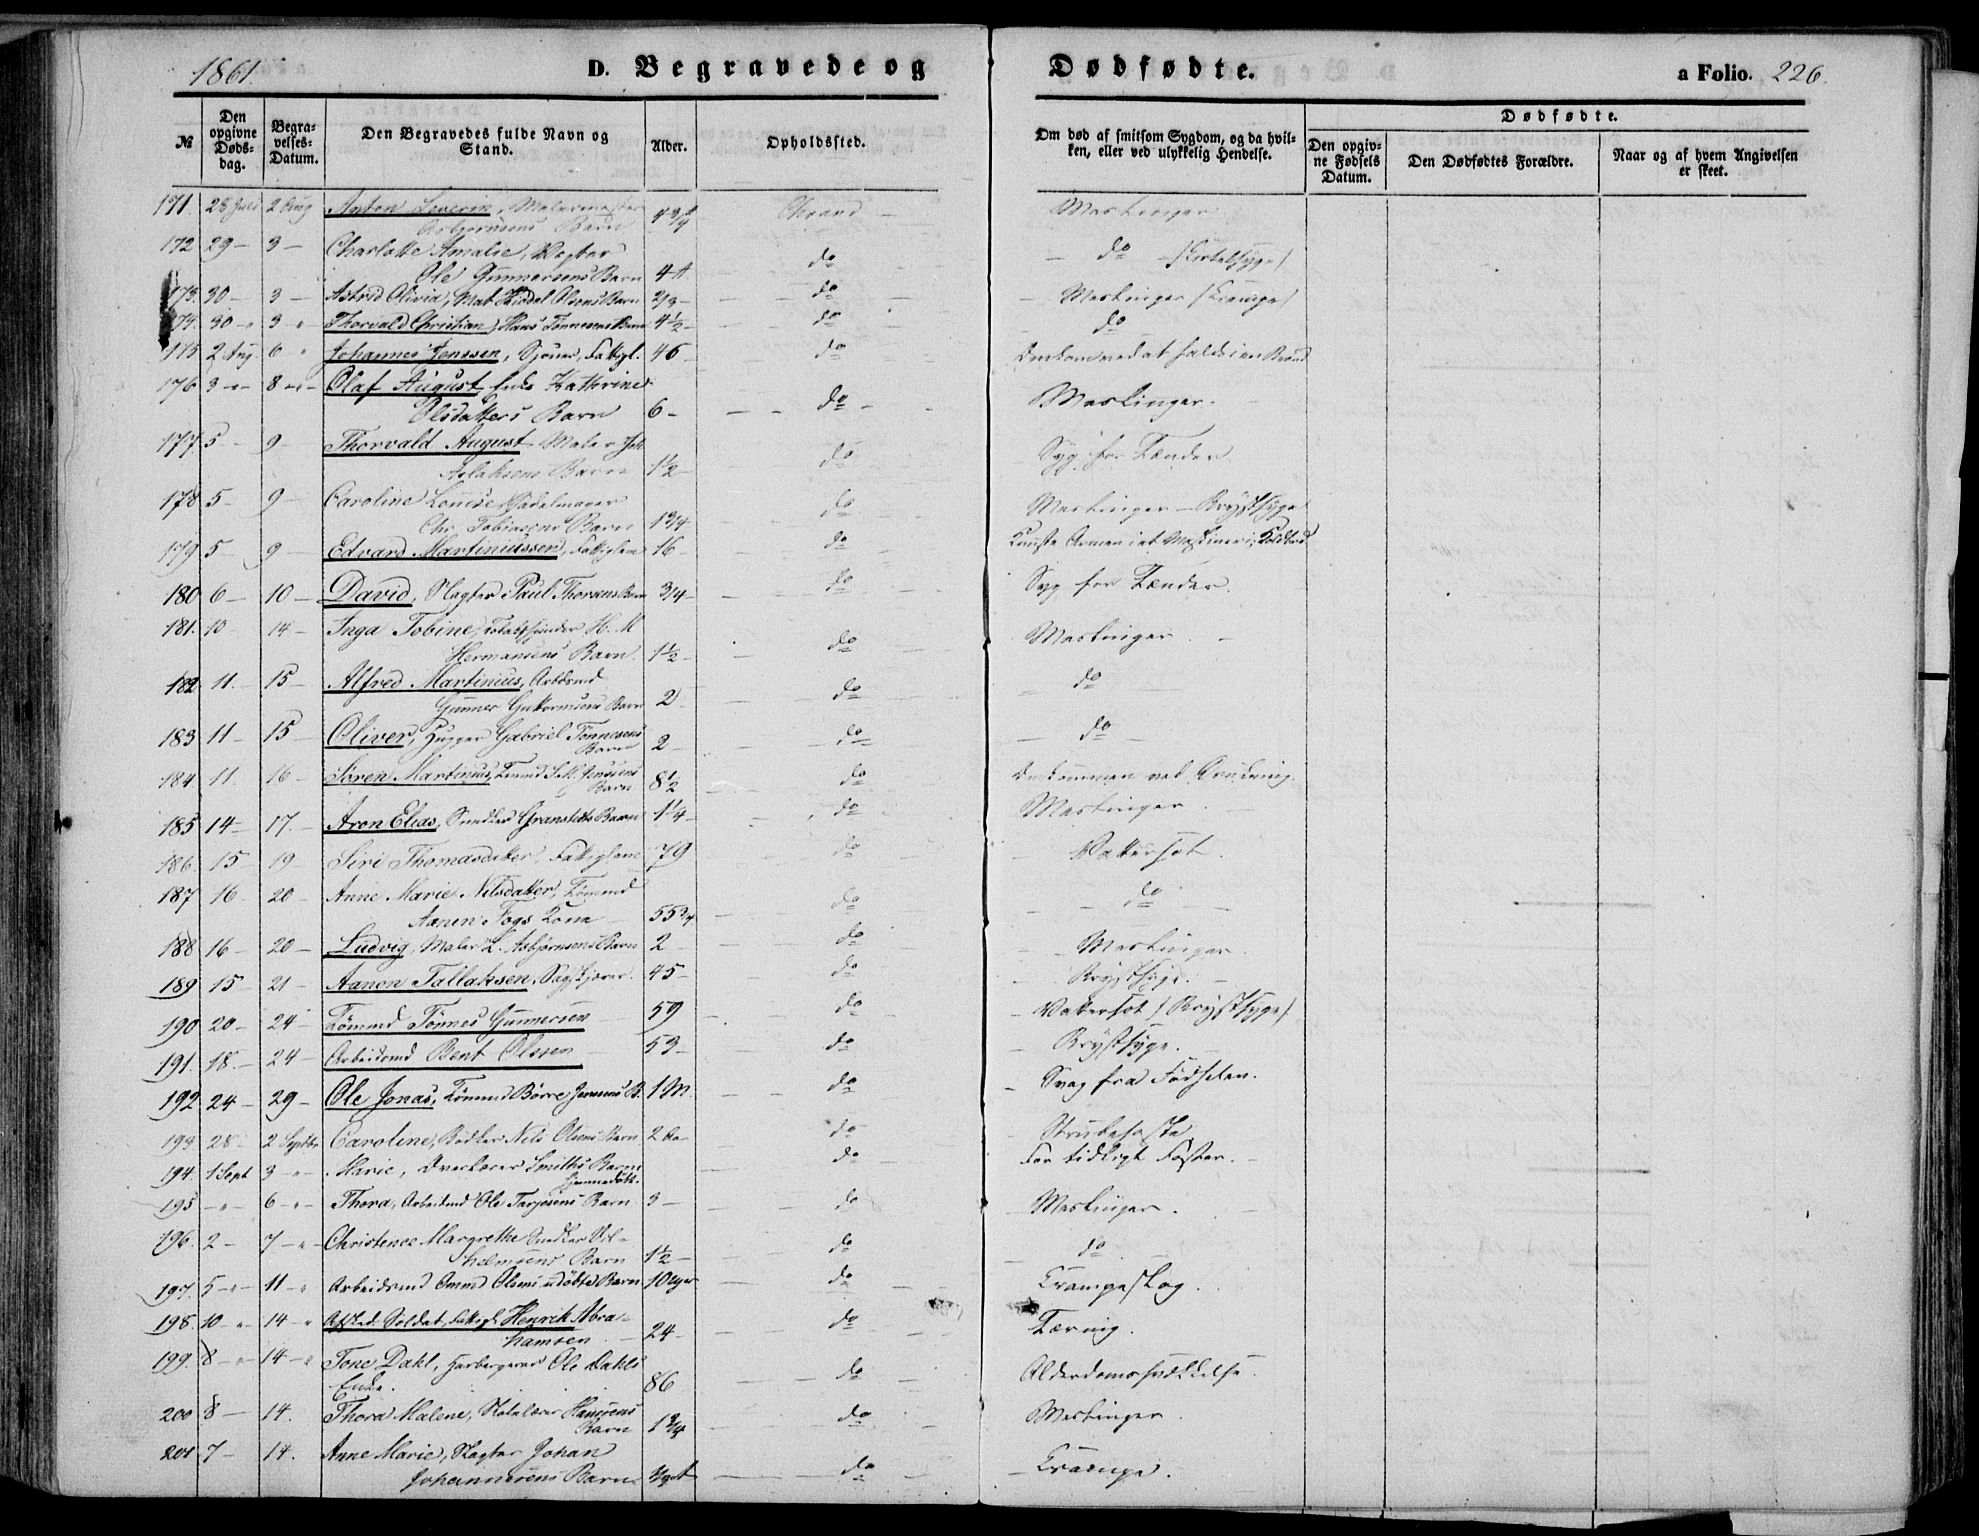 1861.
D. Begravede og Dødfødte.
a Folio. 226.
№
Den opgivne Dødsdag.
Begravelses-Datum.
Den Begravedes fulde Navn og Stand.
Alder.
Opholdssted.
Om død af smitsom Sygdom, og da hvilken, eller ved ulykkelig Hendelse.
Dødfødte.
Den opgivne Fødsels Datum.
Den Dødfødtes Forældre.
Naar og af hvem Angivelsen er skeet.
171. 28 Juli 2 Aug Anton Severin, Malermester
Asbjørnsens Barn 4 3/4 Chrsand Meslinger
172 29 - 3 - Charlotte Amalie, Vægter
Ole Gunnersens Barn 4 do do (Kirtelsyge)
173. 30 - 3 - Astrid Olivia, Mat. Olsens Barn 2/3 do Meslinger (Krampe)
174. 30 - 3 " Thorvald Christian, Hans Tønnesens Barn 4 1/2 do do
175 2 Aug 6 " Johannes Jenssen, Fattigl. 46 do Omkom ved at falde i en Brønd
176 3 - 8 - Olaf August, Enke Kathrine
Olsdatters Barn 6 - do Meslinger.
177 5 - 9 - Thorvald August, Maler
Aslaksens Barn 1 1/2 do Syg for Tænder
178 5 - 9 - Caroline Louise, Sadelmager
Chr. Tobiasens Barn 1 3/4 do Meslinger - Brystsyge
179 5 - 9 - Edvard Martiniussen, Fattiglem 16 - do Knuste Armen i et Maskineri, Koldbrand
180 6 - 10 - David, Slagter Paul Thorsens Barn 3/4 - do Syg for Tænder.
181. 10 14 - Inga Tobine, H. M
Hermansens Barn. 1 1/2 - do Meslinger
182. 11. - 15 - Alfred Martinius, Arbdsmd
Gunner Guttormsens Barn 2 do do
183 11 - 15 - Oliver, Hugger Gabriel Tønnesens
Barn 2 - do do
184 11. 16 - Søren Martinius, Tømmd Jenssens
Barn 8 1/2 do Omkommen ved Drukning.
185 14 - 17. - Aron Elias, Snedker Granstedts Barn 1 1/4 - do Meslinger
186. 15 19 - Siri Thomasdatter, Fattiglem 79 do Vattersot.
187 16 20 - Anne Marie Nilsdatter, Tømmd
Aanen Fogs Kone 55 3/4 do do
188 16 - 20 - Ludvig, Maler L. Asbjørnsens Barn 2 do Meslinger
189 15 21 - Aanen Tallaksen, Sagskjærer. 45 - do Brystsyge.
190 20 - 24 - Tømmd Tønnes Gunnersen 59 do Vattersot (Brystsyge)
191. 18. - 24 - Arbeidsmd Bent Olssen 53 - do Brystsyge.
192 24 - 29 - Ole Jonas, Tømmd Børre Jenssens B. 1 M. do Svag fra Fødselen.
193 28 - 2 Septbr Caroline, Bødker Nils Olsens Barn 2 do Strubehoste
194. 1 Sept 3 - Marie, Overlærer Smiths Barn
hjemmedøbt. do For tidligt Foster.
195 - " - 6 - " - Thora, Arbeidsmd Ole Tarjesens Barn 3 - do Meslinger.
196. 2 - 7 - " - Christence Margrethe, Snedker Vil-
helmsens Barn 1 1/2 - do do
197. 5 - " - 11 - " Arbeidsmd Omund Olsens udøbte Barn 10 Uger do Krampeslag.
198. 10 - " 14 - " Afsked. Soldat, Fattigl. Henrik Abra-
hamsen. 24 - do Tæring.
199. 8 - " 14 - " Tone Dahl, Herbergerer Ole Dahls
Enke. 86 do Alderdomssvækkelse.
200 8 - 14. Thora Malene, Skolelærer Hanssens
Barn 1 3/4 do Meslinger.
201 7 - 14. Anne Marie, Slagter Johan
Johannesens Barn do Krampe.